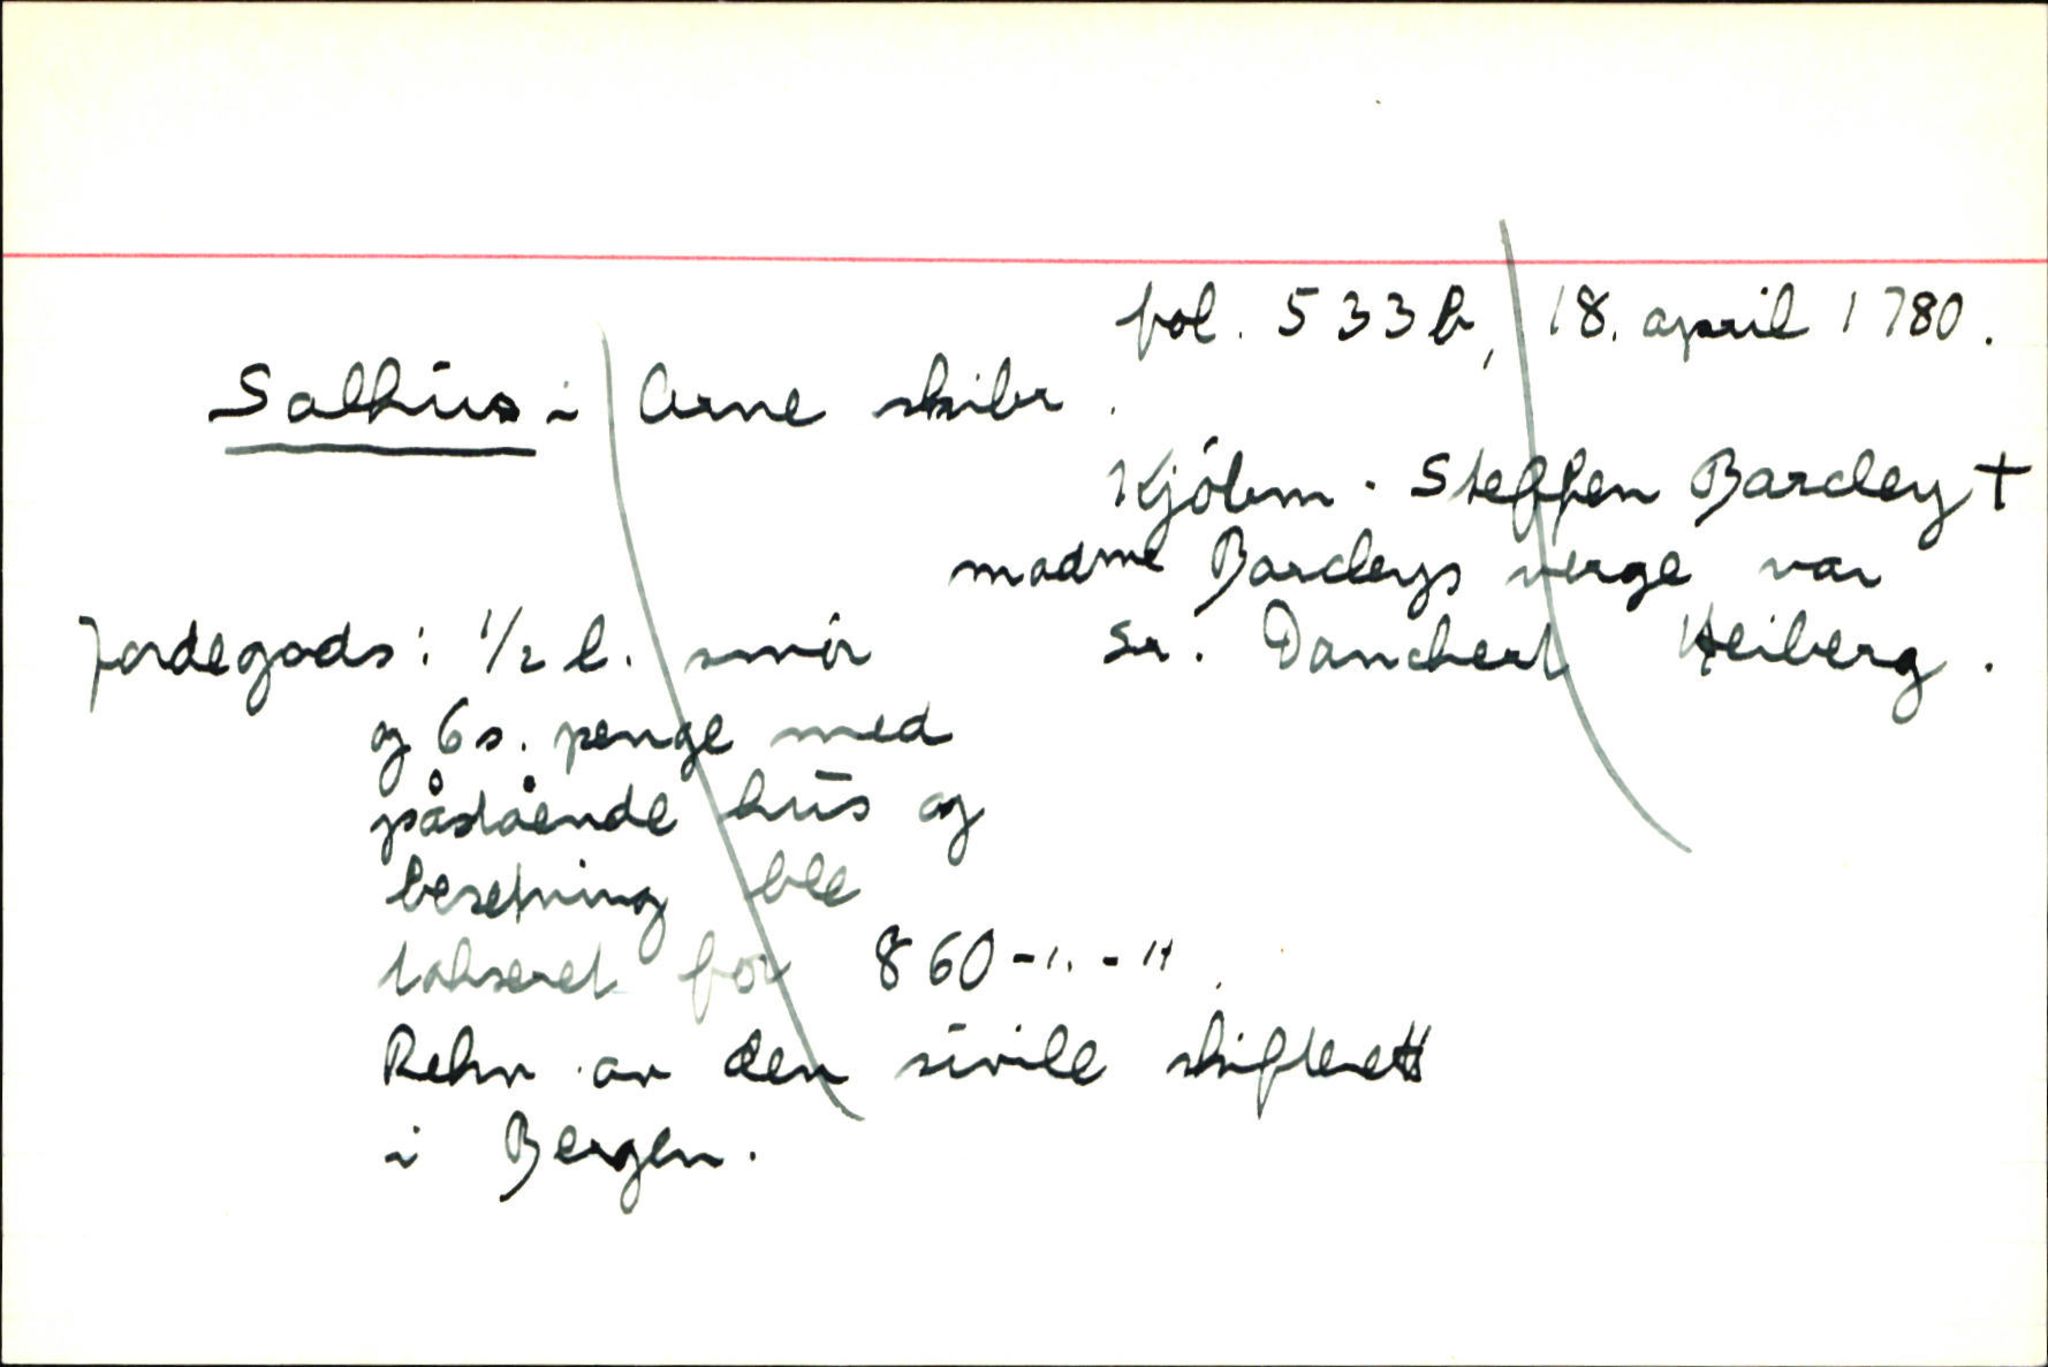 fol. 533b, 18. april 1780.
Salhūs i Arne skibr.
Kjöbm. Steffen Barcley +
madme Barcleys verge var
Sr. Danchert Heiberg.
Jordegods: 1/2 l. smör
og 6 s. penge med
påstående hūs og
besetning ble
takseret for 860-"-"
Rekv. av den sivile skifterett
i Bergen.